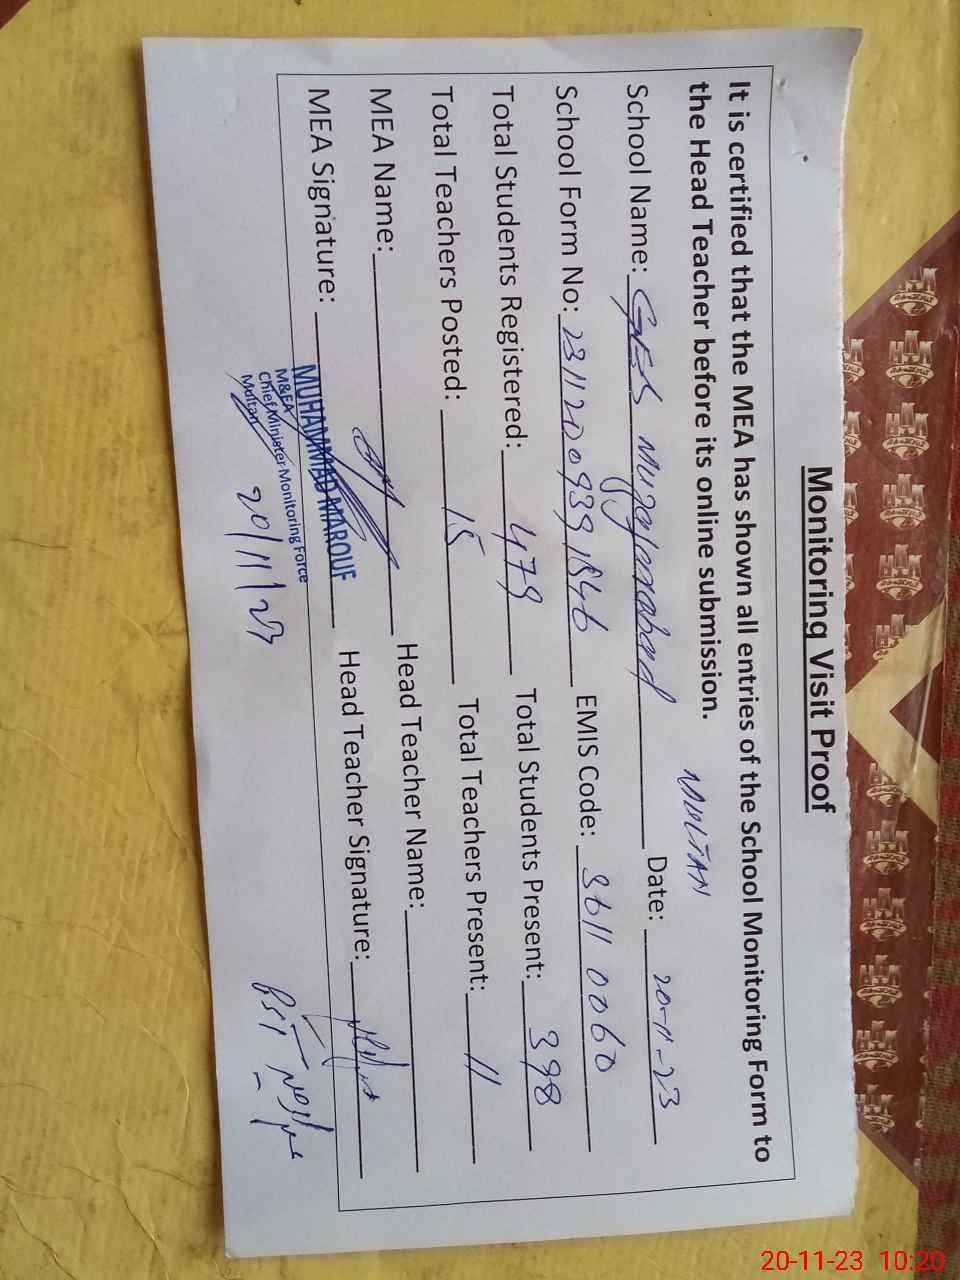 Monitoring Visit Proof
It is certified that the MEA has shown all entries of the School Monitoring Form to
the Head Teacher before its online submission.
MULTAN
School Name: GES Muzaffarabad Date: 20-11-23
School Form No: 23112009391546 EMIS Code: 36110060
Total Students Registered: 479 Total Students Present: 398
Total Teachers Posted: 15 Total Teachers Present: 11
MEA Name: Head Teacher Name:
MEA Signature: Head Teacher Signature:
MUHAMMAD MAROUF
M&EA
Chief Minister Monitoring Force
Multan
20/11/23
20-11-23 10:20